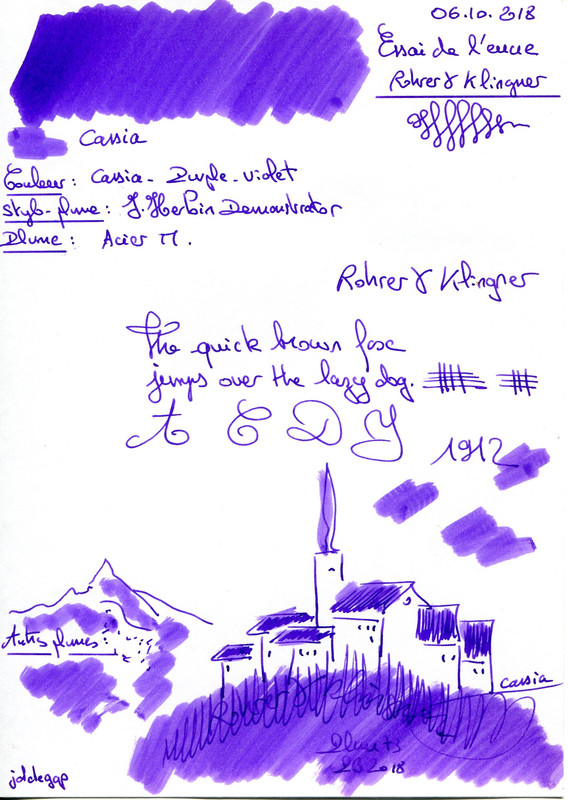 06.10.2018
Essai de l'encre
Rohrer & Klingner
Cassia
Couleur : Cassia - Purple - violet
Stylo-plume : J. Herbin Demonstrator
Plume : Acier M.
Rohrer & Klingner
The quick brown fox
jumps over the lazy dog.
A C D Y
1912
Autres plumes :
Cassia
2018